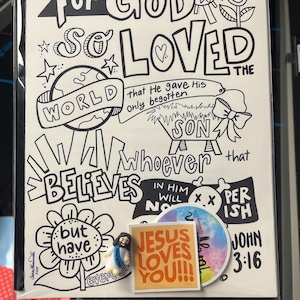 FOR GOD
SO LOVED
THE
WORLD
that He gave His
only begotten
SON
that
whoever
BELIEVES
IN HIM
WILL
PERISH
but
have
JESUS
LOVES
YOU!!!
JOHN
3:16